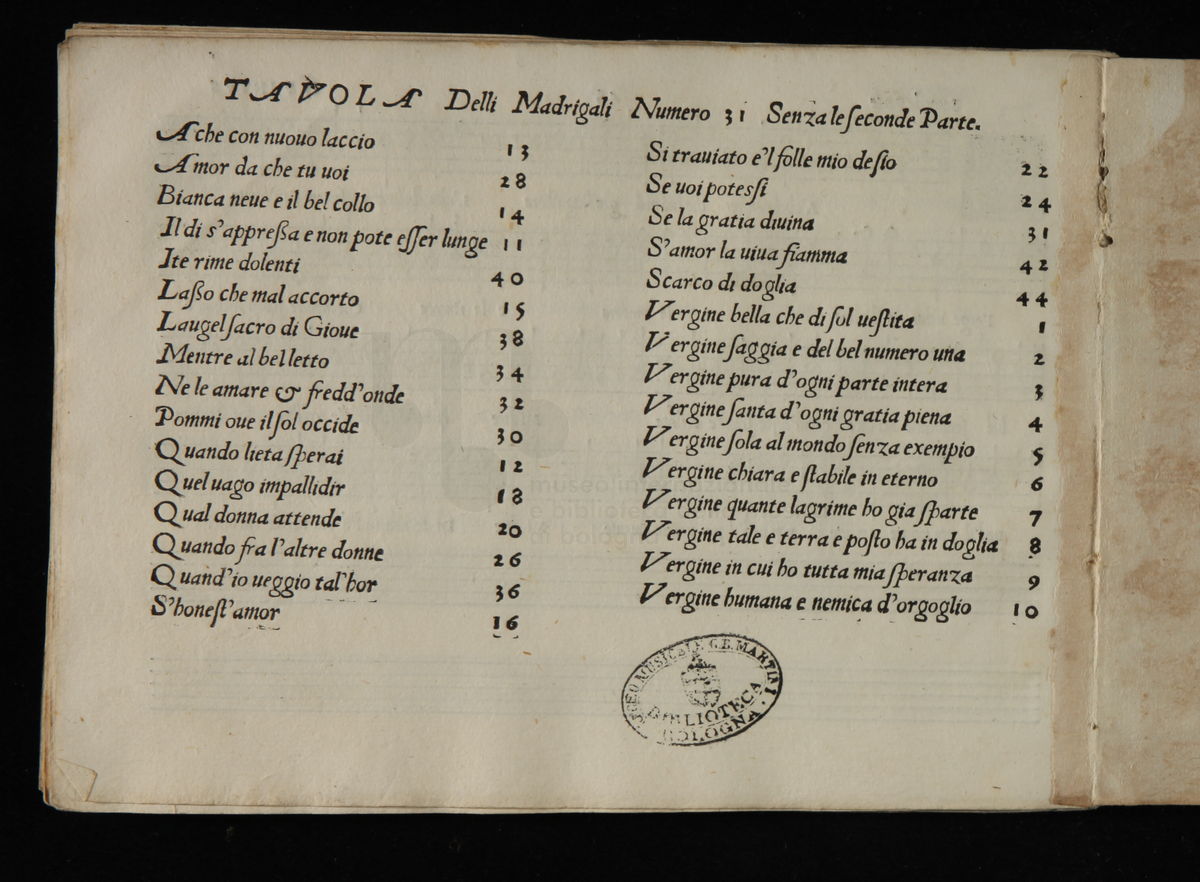 TAVOLA Delli Madrigali Numero 31 Senza le seconde Parte.
A che con nuouo laccio 13
Amor da che tu uoi 28
Bianca neue e il bel collo 14
Il di s'appreßa e non pote esser lunge 11
Ite rime dolenti 40
Laßo che mal accorto 15
Laugel sacro di Gioue 38
Mentre al bel letto 34
Ne le amare & fredd'onde 32
Pommi oue il sol occide 30
Quando lieta sperai 12
Quel uago impallidir 18
Qual donna attende 20
Quando fra l'altre donne 26
Quand'io ueggio tal'hor 36
S'honest'amor 16
Si trauiato e'l folle mio desio 22
Se uoi potessi 24
Se la gratia diuina 31
S'amor la uiua fiamma 42
Scarco di doglia 44
Vergine bella che di sol uestita 1
Vergine saggia e del bel numero una 2
Vergine pura d'ogni parte intera 3
Vergine santa d'ogni gratia piena 4
Vergine sola al mondo senza exempio 5
Vergine chiara e stabile in eterno 6
Vergine quante lagrime ho gia sparte 7
Vergine tale e terra e posto ha in doglia 8
Vergine in cui ho tutta mia speranza 9
Vergine humana e nemica d'orgoglio 10
LICEO MUSICALE G.B. MARTINI
BIBLIOTECA
BOLOGNA